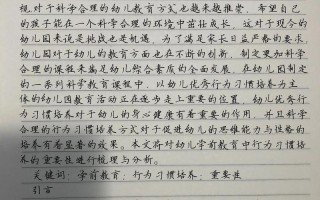 视.对于科学合理的幼儿教育方式也越来越推崇，希望自己
的孩子能在一个科学合理的环境中茁壮成长，这对于现今的
幼儿园来说是挑战也是机遇。为了满足家长日益严苛的要求，
幼儿园对于幼儿的教育方面也在不断的创新，制定更加科学
合理的课程来满足幼儿综合素质的全面发展，在幼儿园制定
的一系列科学教育课程中，以幼儿优秀行为习惯培养为主
体的幼儿园教育活动正在逐步走上重要的位置，幼儿优秀行
为习惯培养对于幼儿的身心健康有着重要的作用，并且科学
合理的行为习惯培养方式对于促进幼儿的思维能力与性格的
培养有着显著的效果。本文将对幼儿学前教育中行为习惯培养
的重要性进行梳理与分析。
关键词：学前教育；行为习惯培养；重要性
引言